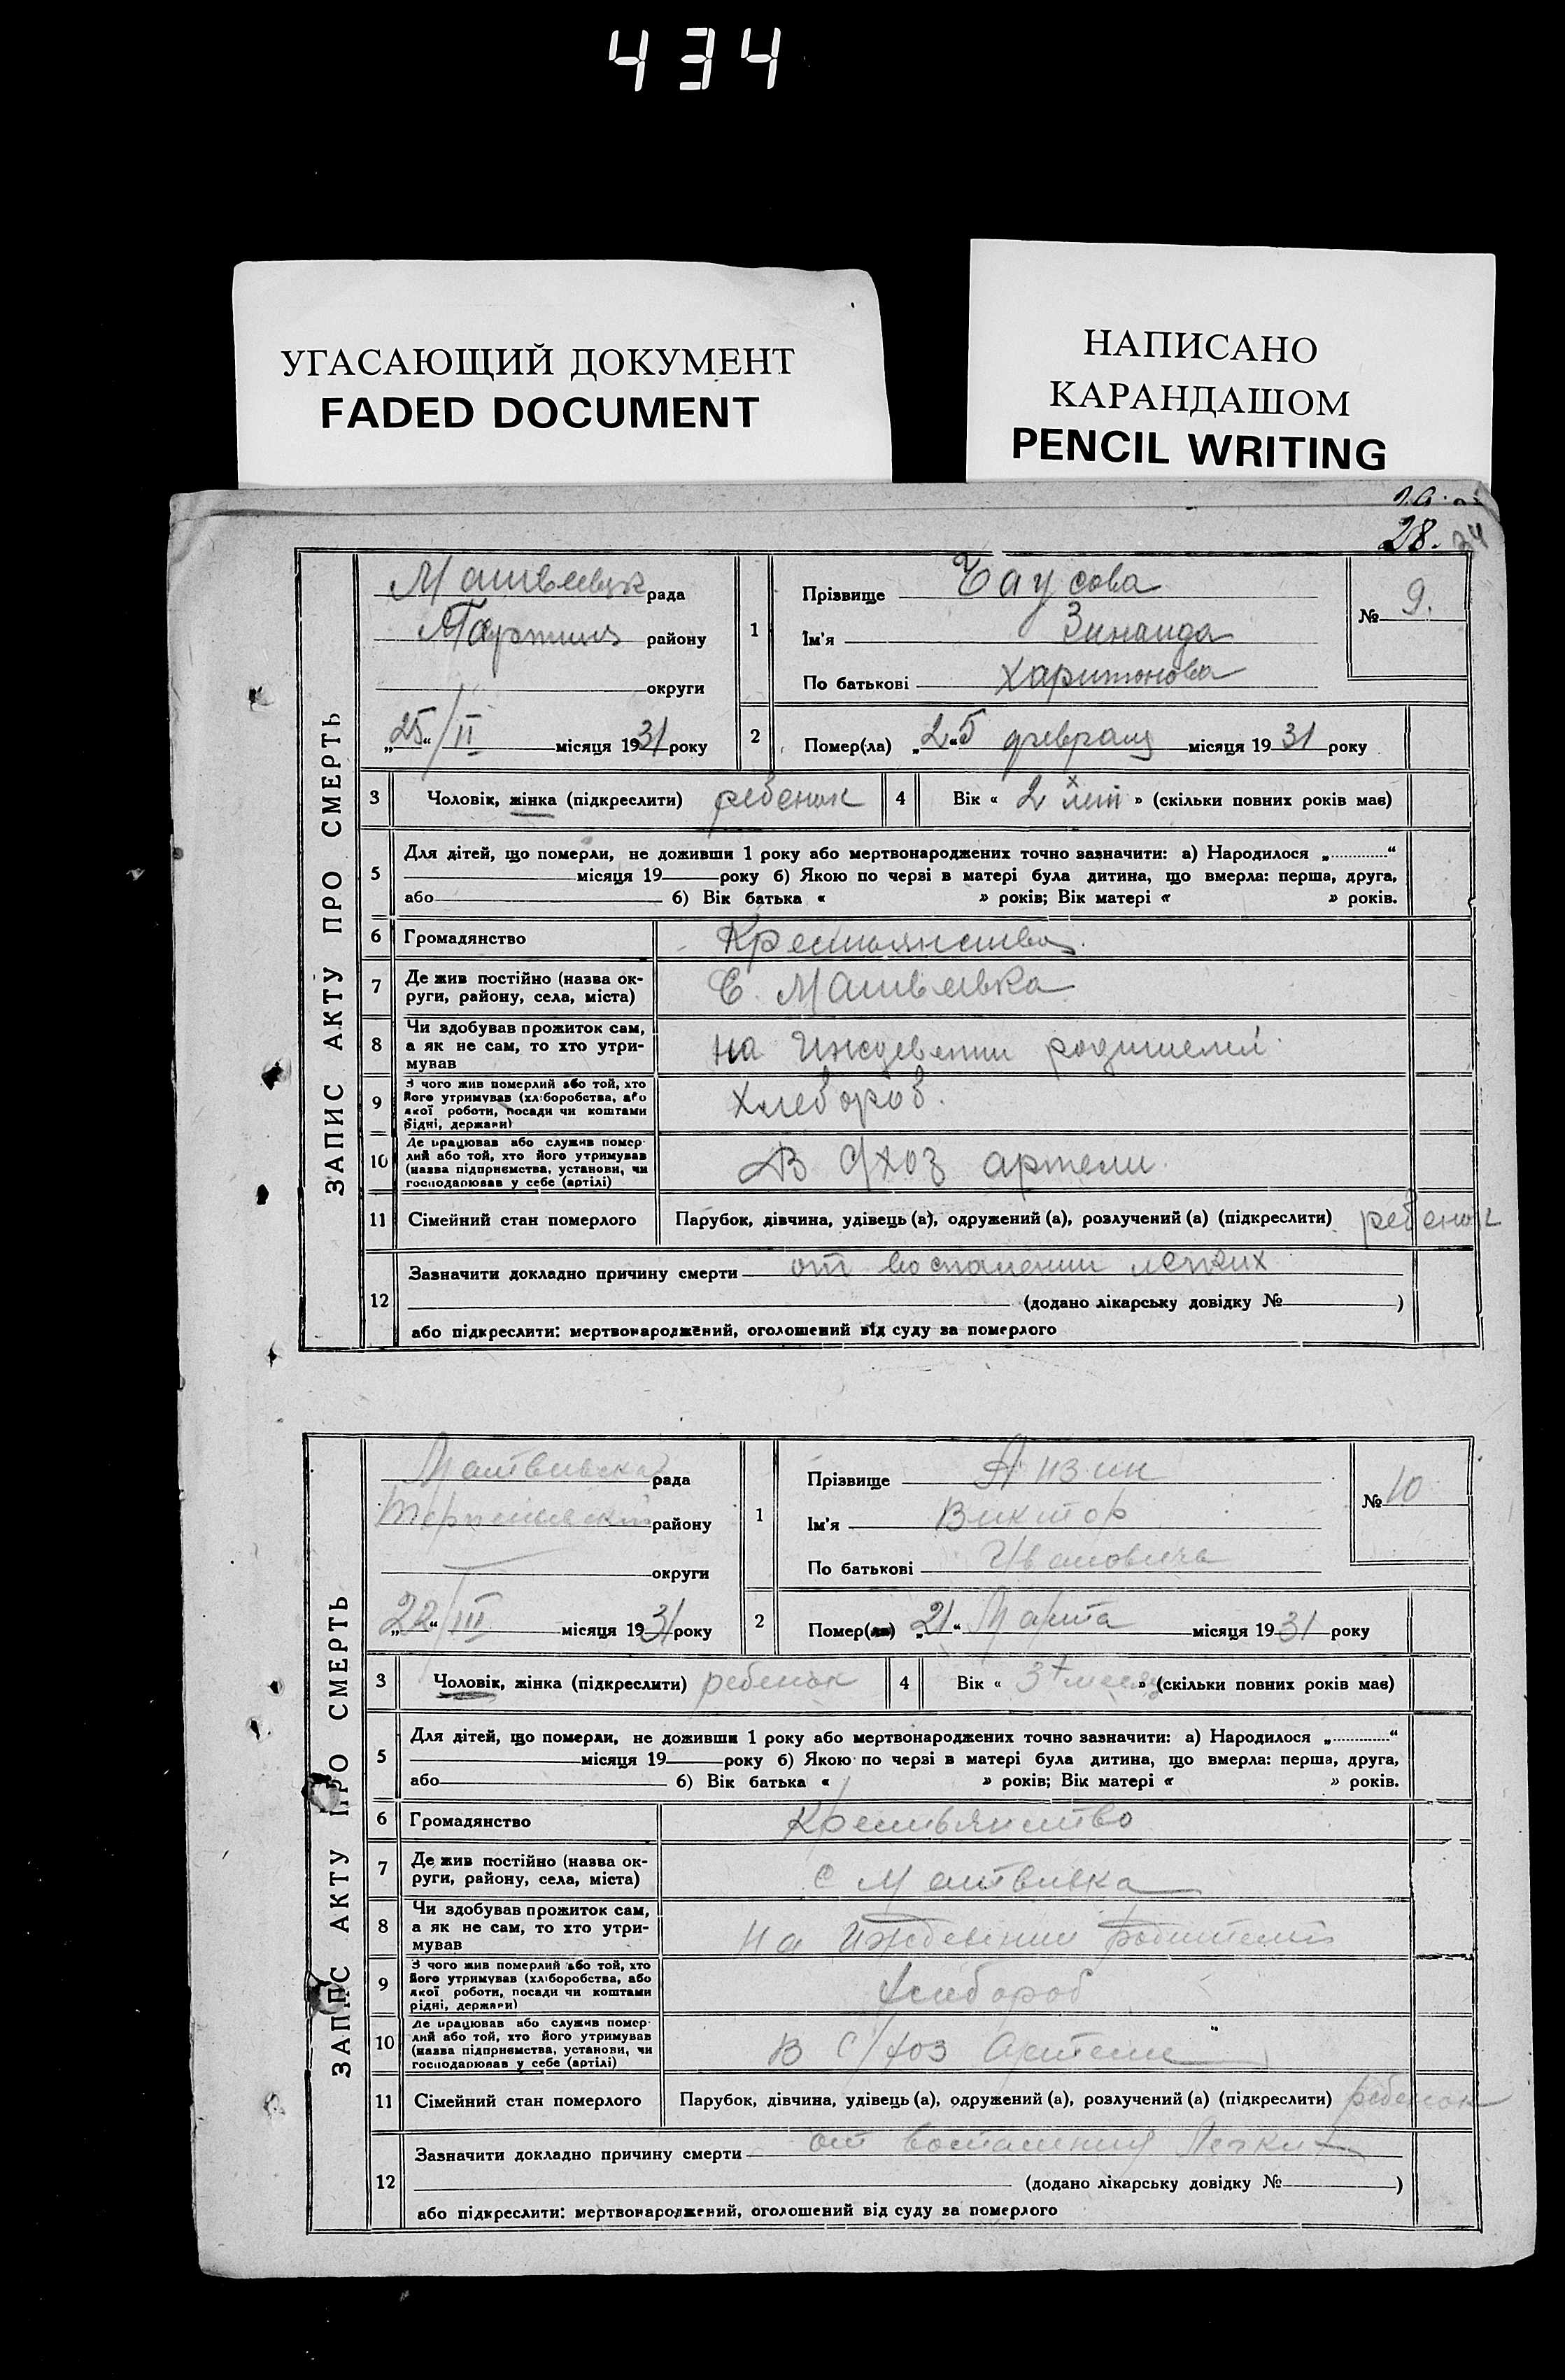 434
УГАСАЮЩИЙ ДОКУМЕНТ
FADED DOCUMENT
НАПИСАНО
КАРАНДАШОМ
PENCIL WRITING
28.
ЗАПИС АКТУ ПРО СМЕРТЬ
рада
району
округи
„25“/II місяця 1931 року
1
Прізвище Чаусова
Ім'я Зинаида
По батькові Харитонова
№ 9.
2
Помер(ла) „25 февраля місяця 1931 року
3
Чоловік, жінка (підкреслити) ребенок
4
Вік « 2 лет » (скільки повних років має)
5
Для дітей, що померли, не доживши 1 року або мертвонароджених точно зазначити: а) Народилося „............“
місяця 19 року б) Якою по черзі в матері була дитина, що вмерла: перша, друга,
або б) Вік батька « » років; Вік матері « » років.
6
Громадянство
Крестьянство
7
Де жив постійно (назва ок-
руги, району, села, міста)
С. Матвеевка
8
Чи здобував прожиток сам,
а як не сам, то хто утри-
мував
на Иждевении родителей
9
З чого жив померлий або той, хто
його утримував (хліборобства, або
якої роботи, посади чи коштами
рідні, держави)
хлебороб.
10
Де працював або служив помер-
лий або той, хто його утримував
(назва підприємства, установи, чи
господарював у себе (артілі)
В с/хоз артели
11
Сімейний стан померлого
Парубок, дівчина, удівець (а), одружений (а), розлучений (а) (підкреслити) ребенок
12
Зазначити докладно причину смерти от воспалении легких
(додано лікарську довідку № )
або підкреслити: мертвонароджений, оголошений від суду за померлого
ЗАПИС АКТУ ПРО СМЕРТЬ
рада
району
округи
„22“/III місяця 1931 року
1
Прізвище
Ім'я Виктор
По батькові Ивановича
№ 10
2
Помер(ла) „21“ Марта місяця 1931 року
3
Чоловік, жінка (підкреслити) ребенок
4
Вік « 3 месяц » (скільки повних років має)
5
Для дітей, що померли, не доживши 1 року або мертвонароджених точно зазначити: а) Народилося „............“
місяця 19 року б) Якою по черзі в матері була дитина, що вмерла: перша, друга,
або б) Вік батька « » років; Вік матері « » років.
6
Громадянство
Крестьянство
7
Де жив постійно (назва ок-
руги, району, села, міста)
с Матвивка
8
Чи здобував прожиток сам,
а як не сам, то хто утри-
мував
На Иждевении родителей
9
З чого жив померлий або той, хто
його утримував (хліборобства, або
якої роботи, посади чи коштами
рідні, держави)
Хлебороб
10
Де працював або служив помер-
лий або той, хто його утримував
(назва підприємства, установи, чи
господарював у себе (артілі)
В с/хоз Артели
11
Сімейний стан померлого
Парубок, дівчина, удівець (а), одружений (а), розлучений (а) (підкреслити) ребенок
12
Зазначити докладно причину смерти от воспаления Легких
(додано лікарську довідку № )
або підкреслити: мертвонароджений, оголошений від суду за померлого